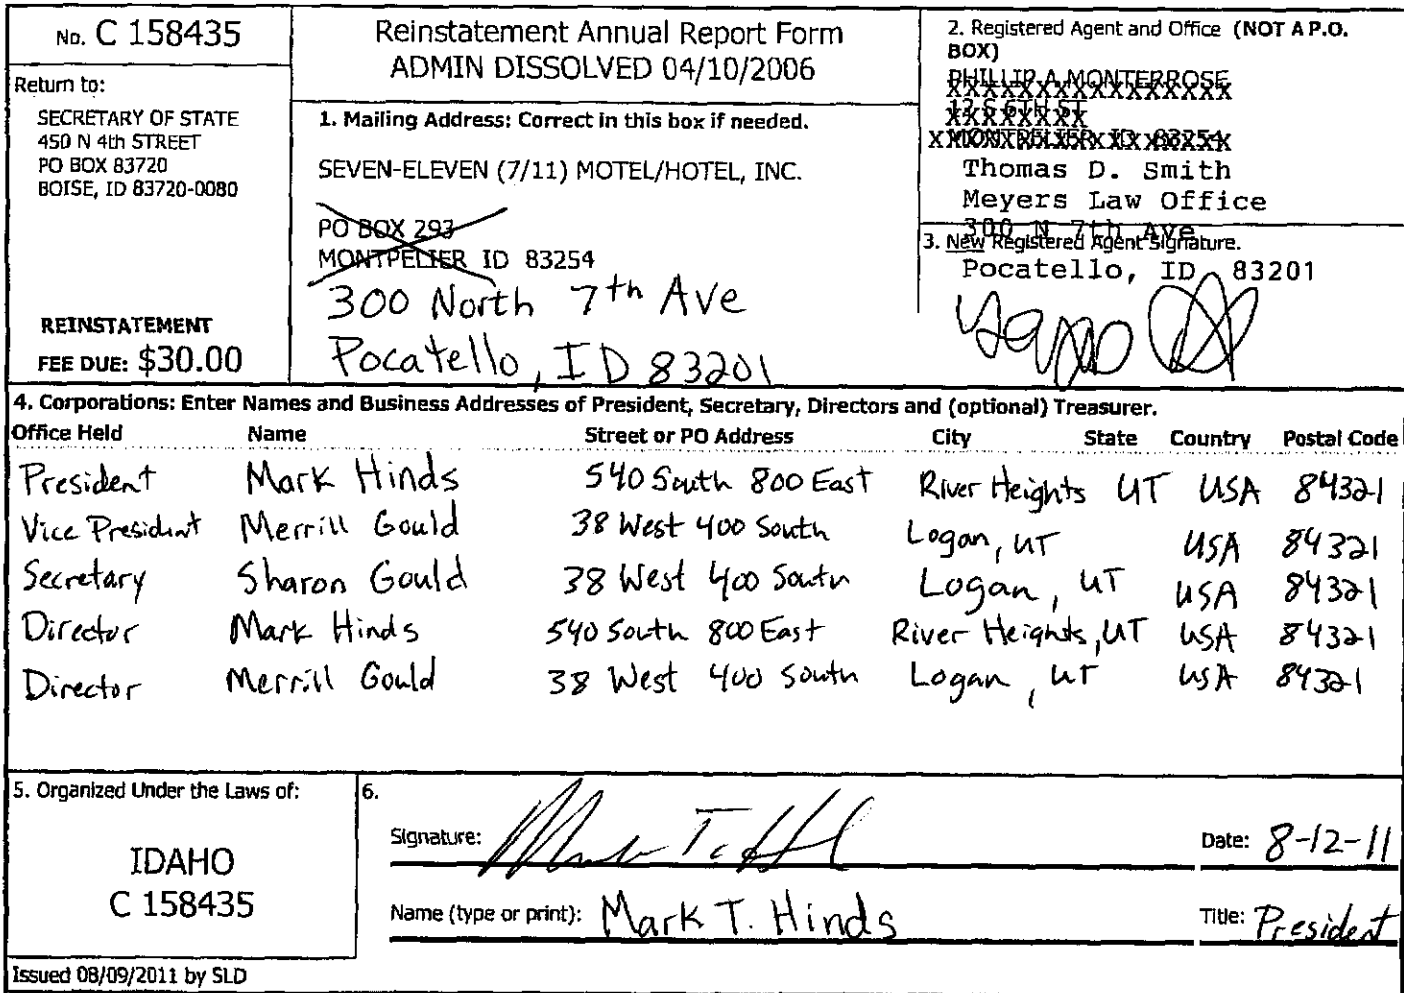 No. C 158435
Return to:
SECRETARY OF STATE
450 N 4th STREET
PO BOX 83720
BOISE, ID 83720-0080
REINSTATEMENT
FEE DUE: $30.00
Reinstatement Annual Report Form
ADMIN DISSOLVED 04/10/2006
1. Mailing Address: Correct in this box if needed.
SEVEN-ELEVEN (7/11) MOTEL/HOTEL, INC.
PO BOX 293
MONTPELIER ID 83254
300 North 7th Ave
Pocatello, ID 83201
2. Registered Agent and Office (NOT A P.O.
BOX)
PHILLIP A MONTERROSE
12 S 6TH ST
MONTPELIER ID 83254
Thomas D. Smith
Meyers Law Office
300 N 7th Ave
3. New Registered Agent Signature.
Pocatello, ID 83201
4. Corporations: Enter Names and Business Addresses of President, Secretary, Directors and (optional) Treasurer.
Office Held Name Street or PO Address City State Country Postal Code
President Mark Hinds 540 South 800 East River Heights UT USA 84321
Vice President Merrill Gould 38 West 400 South Logan, UT USA 84321
Secretary Sharon Gould 38 West 400 South Logan, UT USA 84321
Director Mark Hinds 540 South 800 East River Heights, UT USA 84321
Director Merrill Gould 38 West 400 South Logan, UT USA 84321
5. Organized Under the Laws of:
IDAHO
C 158435
6.
Signature: Date: 8-12-11
Name (type or print): Mark T. Hinds Title: President
Issued 08/09/2011 by SLD